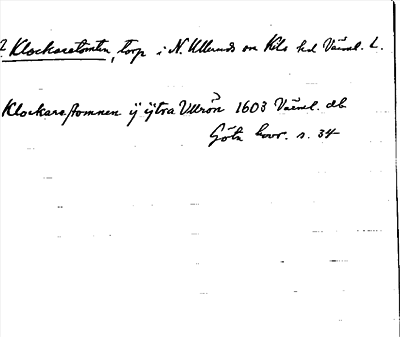 ? Klockaretomten, torp i N. Ullerud sn Kils hd Värml. L.
Klockarestomnen ÿ ÿtra Ullrön 1603 Värml. db
Göta hovr. s. 34